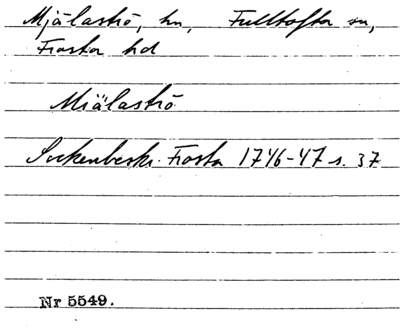 Mjälaströ, hn, Fulltofta sn,
Frosta hd
Miälaströ
Sockenbeskr. Frosta 1746-47 s. 37
Nr 5549.